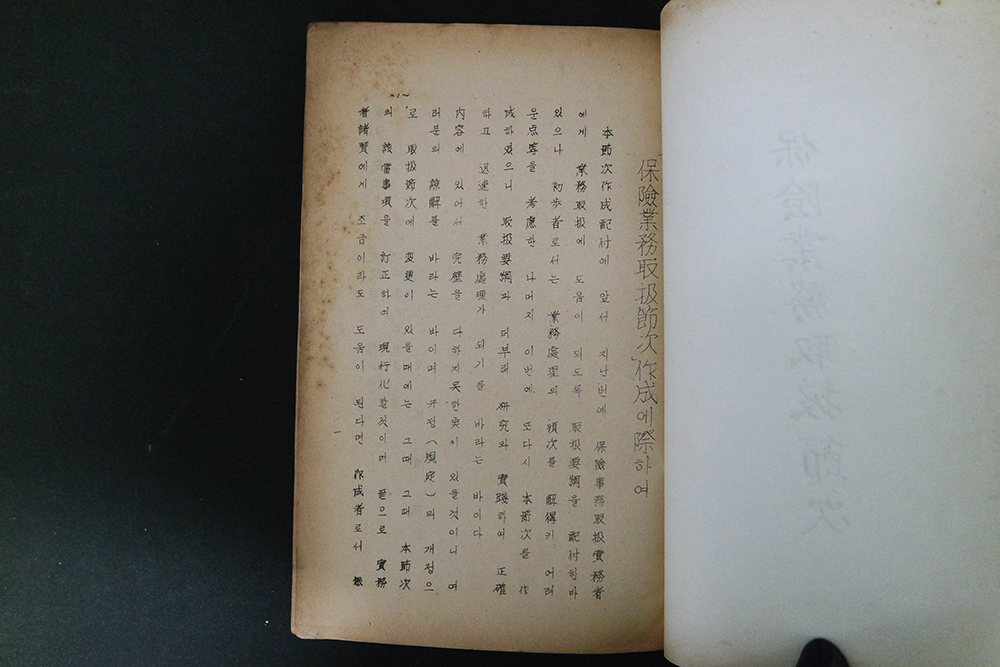 保險業務取扱節次 作成에際하여
本節次作成配付에 앞서 지난번에 保險事務取扱實務者
에게 業務取扱에 도움이 되도록 取扱要綱을 配付한바
있으나 初步者로서는 業務處理의 順次를 解得키 어려
운点等을 考慮한 나머지 이번에 또다시 本節次를 作
成하였으니 取扱要綱과 더부러 硏究와 實踐하여 正確
하고 迅速한 業務處理가 되기를 바라는 바이다
內容에 있어서 完壁을 다하지못한奌이 있을것이니 여
러분의 諒解를 바라는 바이며 규정(規定)의 개정으
로 取扱節次에 変更이 있을때에는 그때 그때 本節次
의 該當事項을 訂正하여 現行化할것이며 끝으로 實務
者諸賢에게 조금이라도 도움이 된다면 作成者로서
~1~
保險業務取扱節次